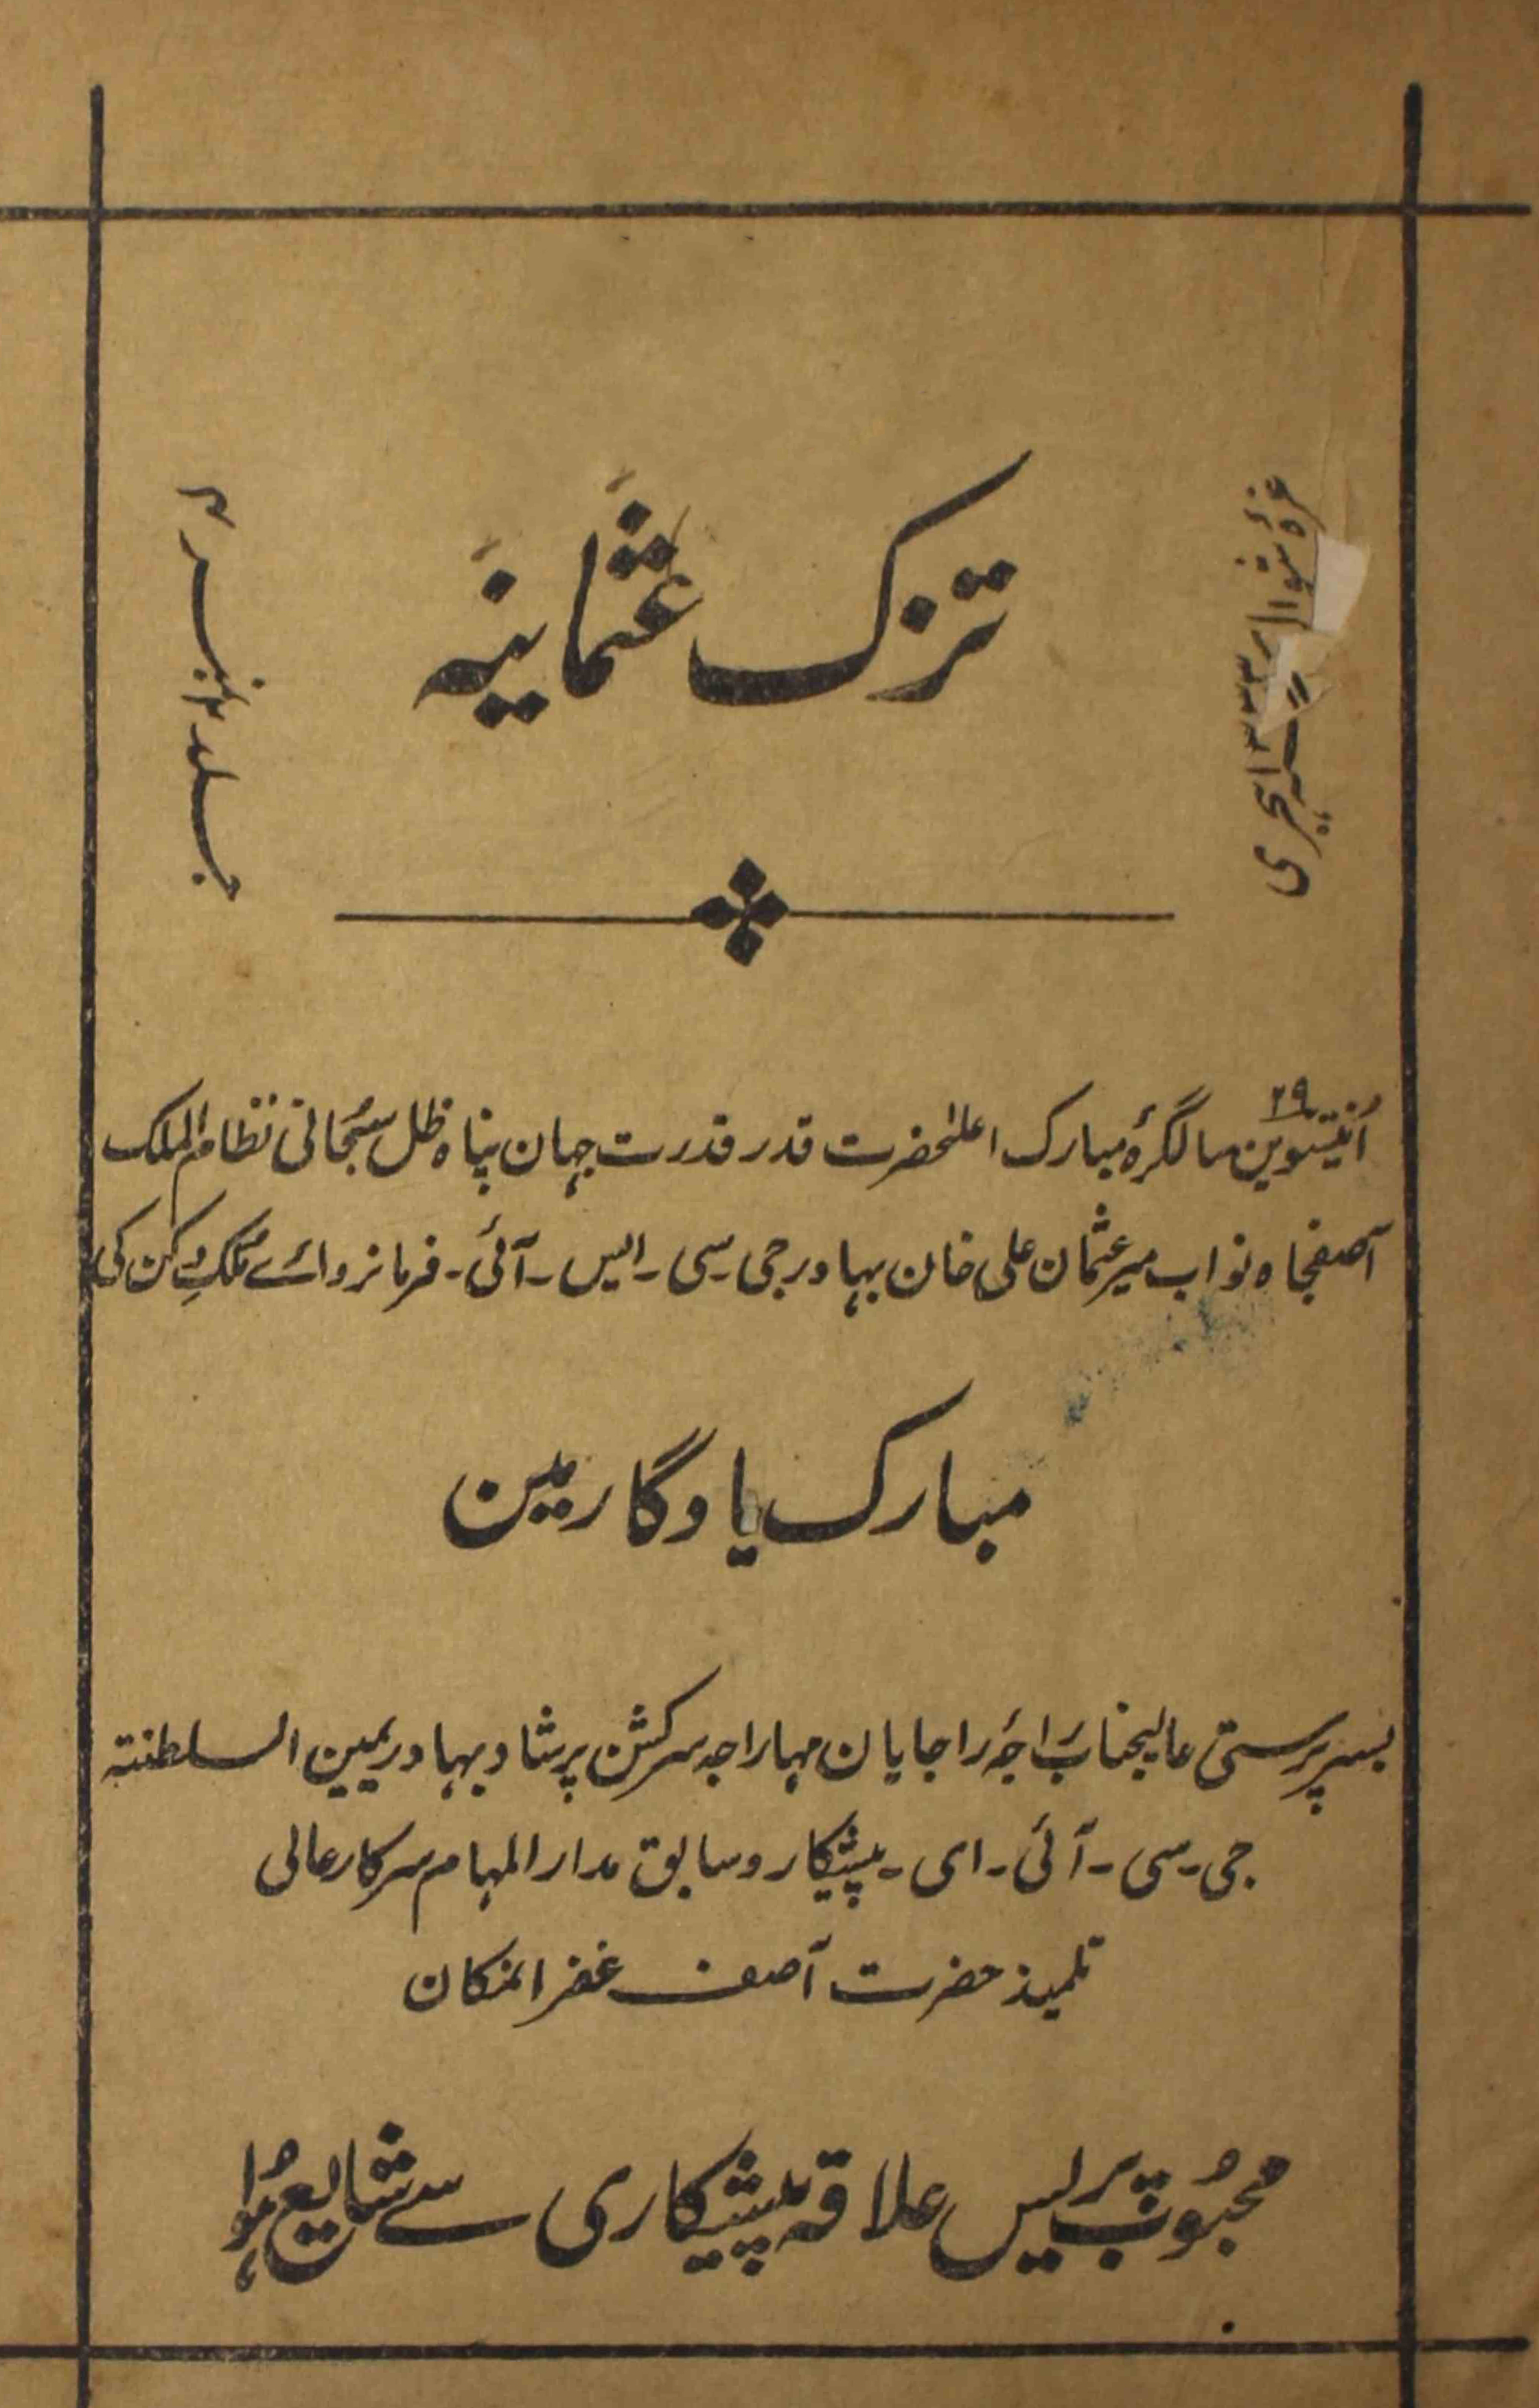 تزک عثمانیہ
غرّۂ شوال ۱۳۳۲ ہجری
جلد ۲ نمبر ۳
۲۹
اُنتیسوین سالگرۂ مبارک اعلٰحضرت قدر قدرت جہان پناہ ظل سُبحانی نظام الملک
آصفجاہ نواب میر عثمان علی خان بہادر جی۔سی۔ایس۔آئی۔ فرمانروائے مُلکِ دکن کی
مبارک یادگار مین
بسرپرستی عالیجناب راجۂ راجایان مہاراجہ سر کشن پرشاد بہادر یمین السلطنتہ
جی۔سی۔آئی۔ای۔ پیشکار و سابق مدار المہام سرکار عالی
تلمیذ حضرت آصف غفرانمکان
محبُوب پریس علاقہ پیشکاری سے شایع ہُوا